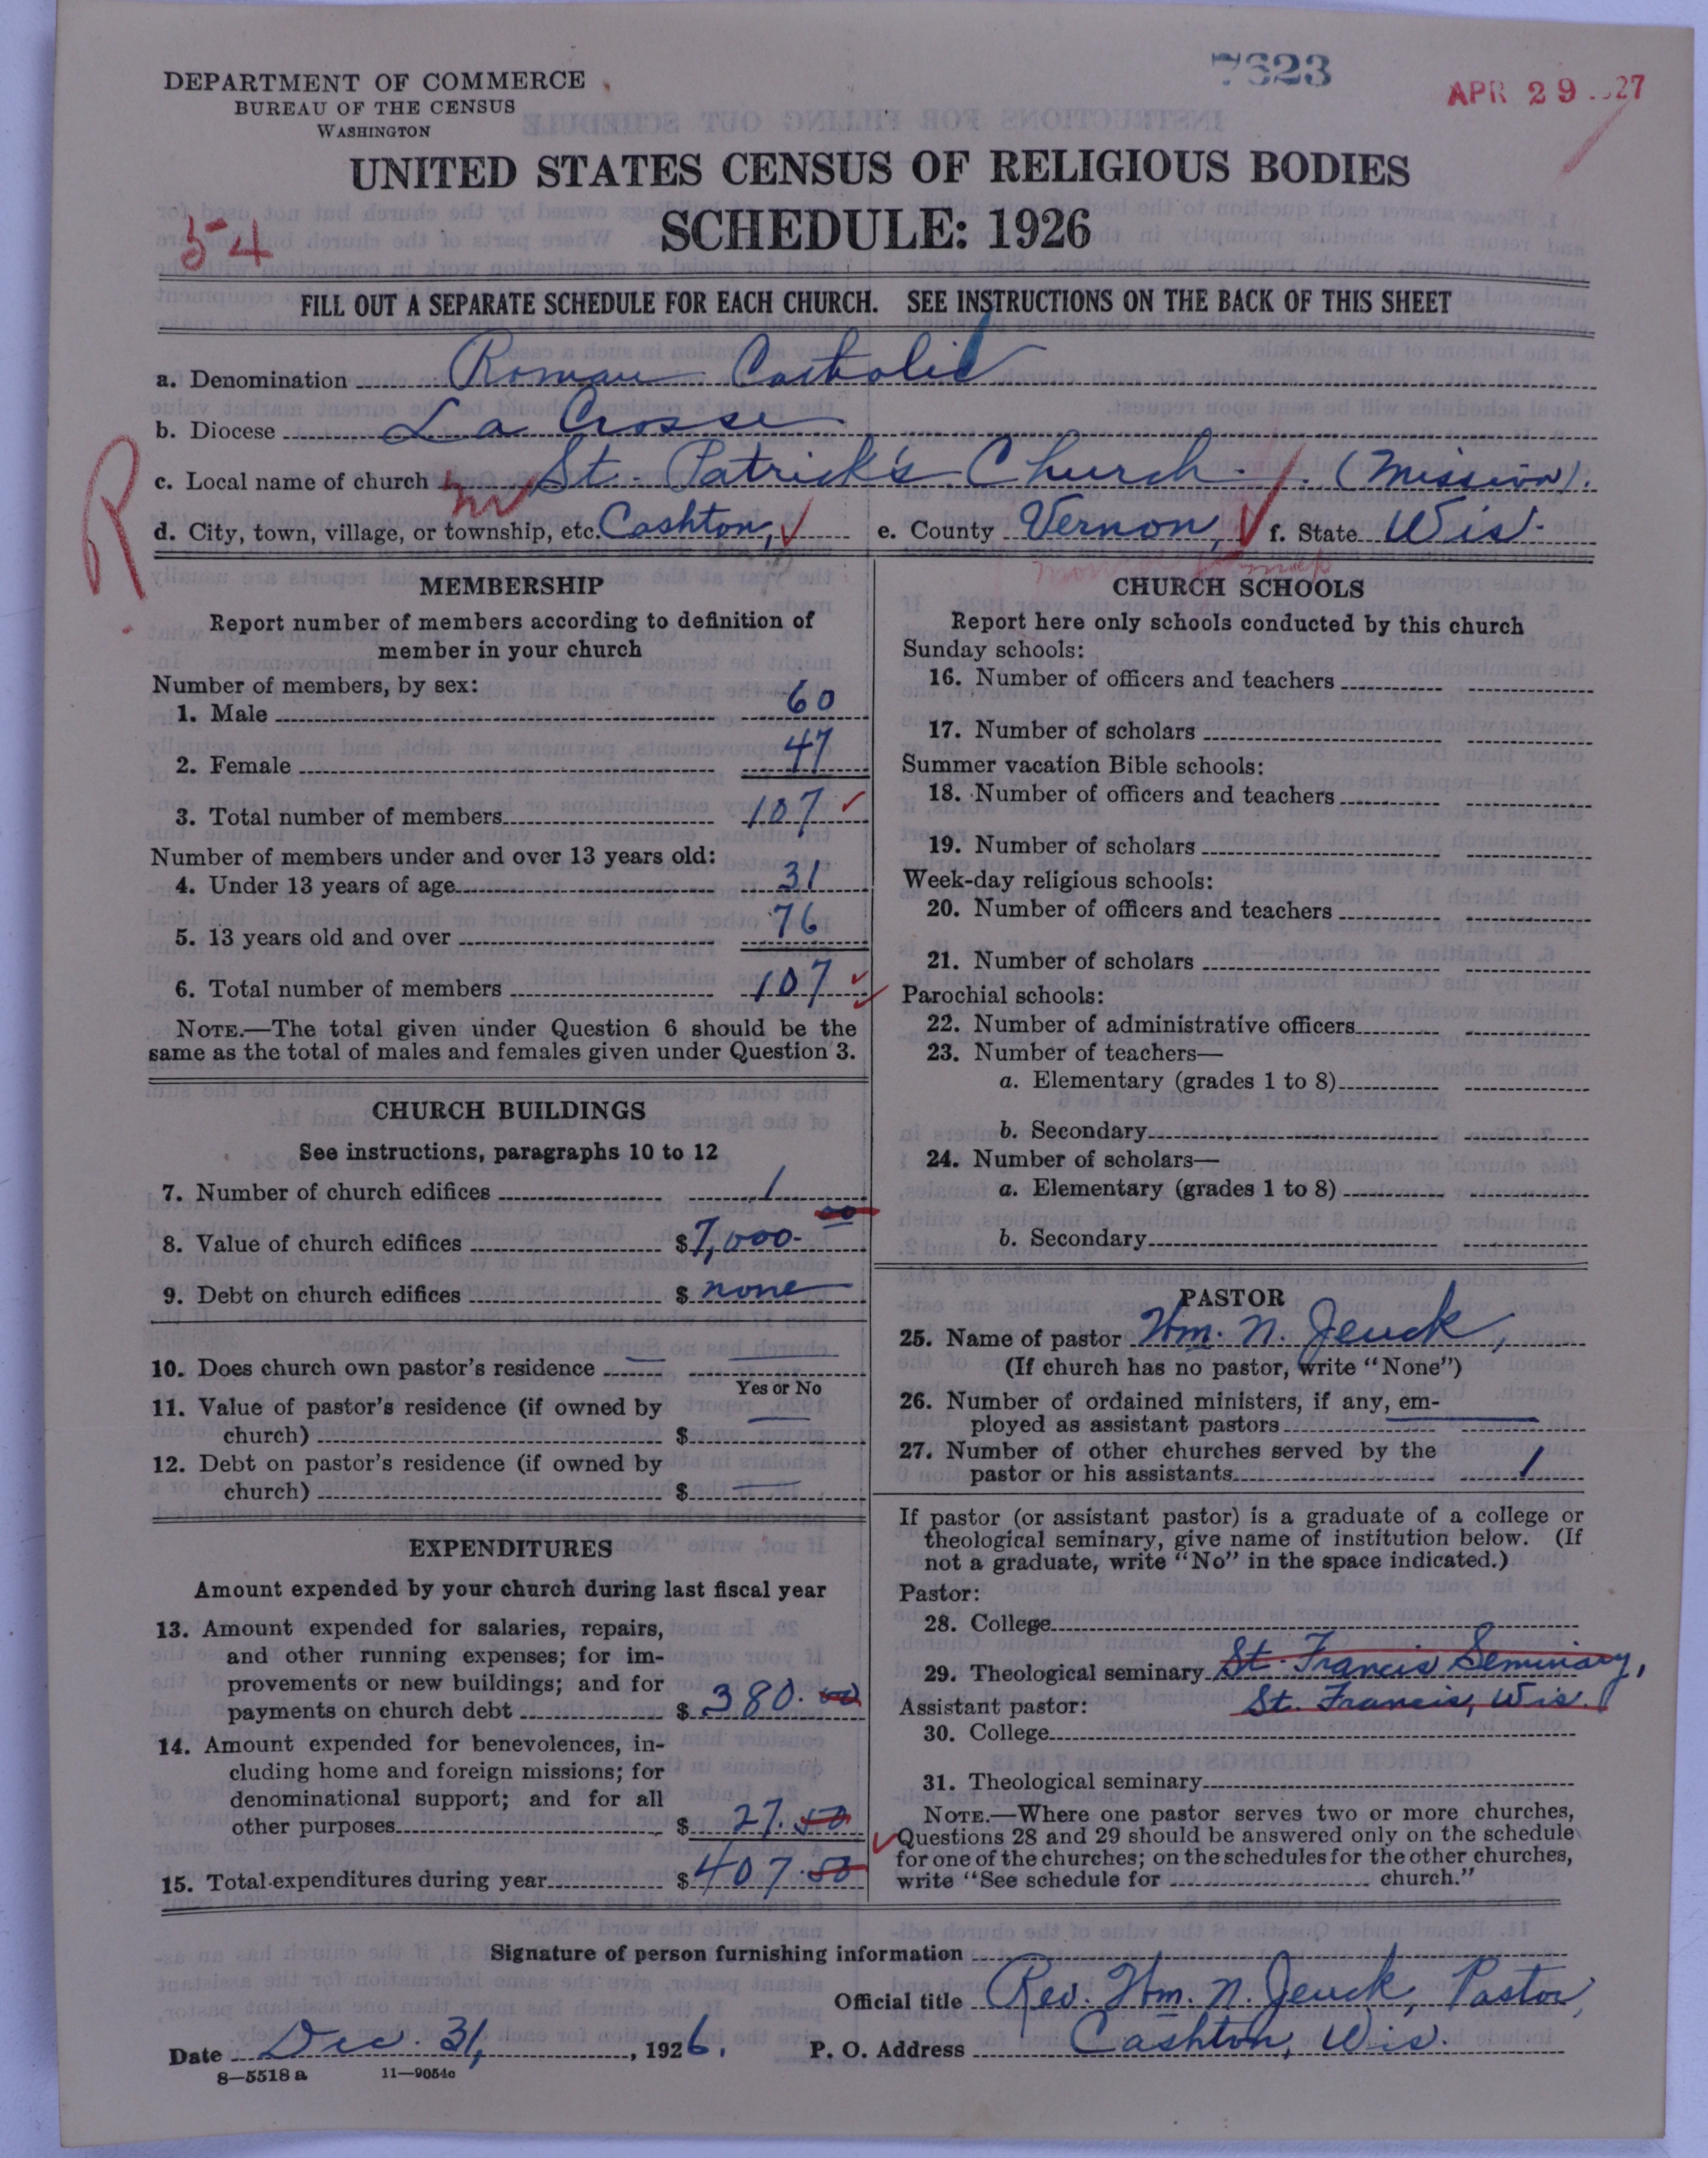 DEPARTMENT OF COMMERCE
BUREAU OF THE CENSUS
WASHINGTON
7623
APR 29 1927
UNITED STATES CENSUS OF RELIGIOUS BODIES
SCHEDULE: 1926
54
FILL OUT A SEPARATE SCHEDULE FOR EACH CHURCH. SEE INSTRUCTIONS ON THE BACK OF THIS SHEET
a. Denomination Roman Catholic
b. Diocese La Crosse
R
c. Local name of church St. Patrick's Church. (Mission).
d. City, town, village, or township, etc. Cashton, e. County Vernon, f. State Wis.
MEMBERSHIP
Report number of members according to definition of
member in your church
Number of members, by sex:
1. Male 60
2. Female 47
3. Total number of members 107
Number of members under and over 13 years old:
4. Under 13 years of age 31
5. 13 years old and over 76
6. Total number of members 107
NOTE.—The total given under Question 6 should be the
same as the total of males and females given under Question 3.
CHURCH BUILDINGS
See instructions, paragraphs 10 to 12
7. Number of church edifices 1
8. Value of church edifices $7,000.00
9. Debt on church edifices $ none
10. Does church own pastor's residence —
Yes or No
11. Value of pastor's residence (if owned by
church) $ —
12. Debt on pastor's residence (if owned by
church) $ —
EXPENDITURES
Amount expended by your church during last fiscal year
13. Amount expended for salaries, repairs,
and other running expenses; for im-
provements or new buildings; and for
payments on church debt $ 380.00
14. Amount expended for benevolences, in-
cluding home and foreign missions; for
denominational support; and for all
other purposes $ 27.50
15. Total expenditures during year $407.50
CHURCH SCHOOLS
Report here only schools conducted by this church
Sunday schools:
16. Number of officers and teachers
17. Number of scholars
Summer vacation Bible schools:
18. Number of officers and teachers
19. Number of scholars
Week-day religious schools:
20. Number of officers and teachers
21. Number of scholars
Parochial schools:
22. Number of administrative officers
23. Number of teachers—
a. Elementary (grades 1 to 8)
b. Secondary
24. Number of scholars—
a. Elementary (grades 1 to 8)
b. Secondary
PASTOR
25. Name of pastor Wm. N. Jeuck,
(If church has no pastor, write "None")
26. Number of ordained ministers, if any, em-
ployed as assistant pastors —
27. Number of other churches served by the
pastor or his assistants 1
If pastor (or assistant pastor) is a graduate of a college or
theological seminary, give name of institution below. (If
not a graduate, write "No" in the space indicated.)
Pastor:
28. College
29. Theological seminary St. Francis Seminary,
St. Francis, Wis.
Assistant pastor:
30. College
31. Theological seminary
NOTE.—Where one pastor serves two or more churches,
Questions 28 and 29 should be answered only on the schedule
for one of the churches; on the schedules for the other churches,
write "See schedule for church."
Signature of person furnishing information
Official title Rev. Wm. N. Jeuck, Pastor,
Date Dec. 31, 1926. P. O. Address Cashton, Wis.
8—5518 a 11—9054c